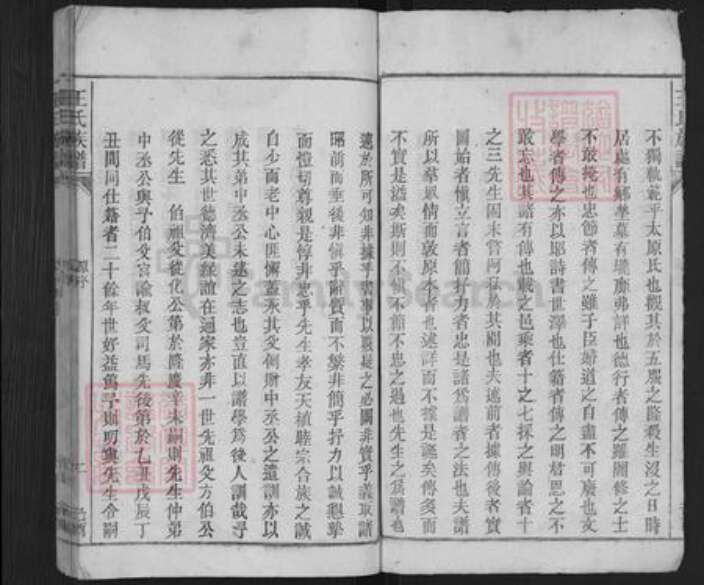 不獨軌範乎太原氏也觀其於五服之隆殺生沒之日時
居處有鄉塋墓有墟廓弗詳也德行者傳之雖闇修之士
不敢掩也忠節者傳之雖子臣婦道之自盡不可廢也文
學者傳之亦以昭詩書世澤也仕籍者傳之明君恩之不
敢忘也其譜有傳也載之邑乘者十之七採之輿論者十
之三先生固未嘗阿私於其間也夫述前者據傳後者實
圖始者愼立言者簡抒力者忠是諸為譜者之法也夫譜
所以羣衆情而敦原本者也述詳而不據是誕矣傳多而
不實是謟矣斯則不愼不簡不忠之過也先生之為譜也
遠於所可知非據乎書事以覈疑之必闕非實乎義取諸
昭前而垂後非愼乎辭質而不繁非簡乎抒力以誠懇摯
而愷切尊親是惇非忠乎先生孝友天植睦宗合族之誠
自少而老中心匪懈蓋承其父側財中丞公之遺訓亦以
成其弟中丞公未逮之志也豈直以譜學為後人訓哉予
之悉其世德濟美雖誼在通家亦非一世先祖父方伯公
從先生 伯祖父從化公第於隆慶辛未嗣則先生仲弟
中丞公與予伯父宮諭叔父司馬先後第於乙丑戊辰丁
丑間同仕籍者二十餘年世好益篤予則明與先生令嗣
王氏族譜
FamilySearch